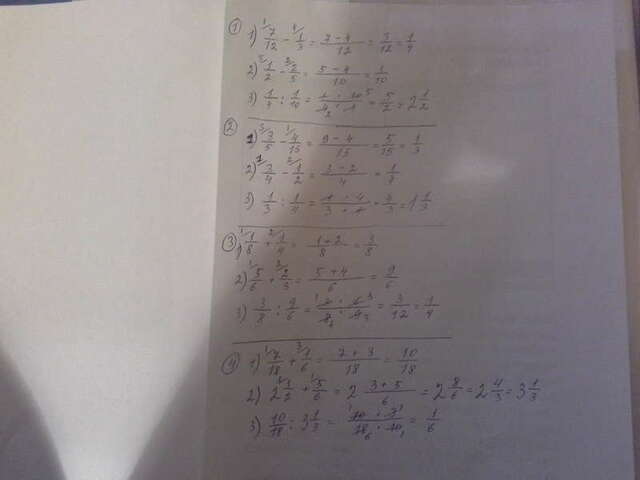 1) 1) 7/12 - 1/3 = 7-4/12 = 3/12 = 1/4
2) 1/2 - 2/5 = 5-4/10 = 1/10
3) 1/4 : 1/10 = 1·10/4·1 = 5/2 = 2 1/2
2) 1) 3/5 - 4/15 = 9-4/15 = 5/15 = 1/3
2) 3/4 - 1/2 = 3-2/4 = 1/4
3) 1/3 : 1/4 = 1·4/3·1 = 4/3 = 1 1/3
3) 1) 1/8 + 1/4 = 1+2/8 = 3/8
2) 5/6 + 2/3 = 5+4/6 = 9/6
3) 3/8 : 9/6 = 3·6/8·9 = 3/12 = 1/4
4) 1) 7/18 + 1/6 = 7+3/18 = 10/18
2) 2 1/2 + 5/6 = 2 3+5/6 = 2 8/6 = 2 4/3 = 3 1/3
3) 10/18 : 3 1/3 = 10·3/18·10 = 1/6